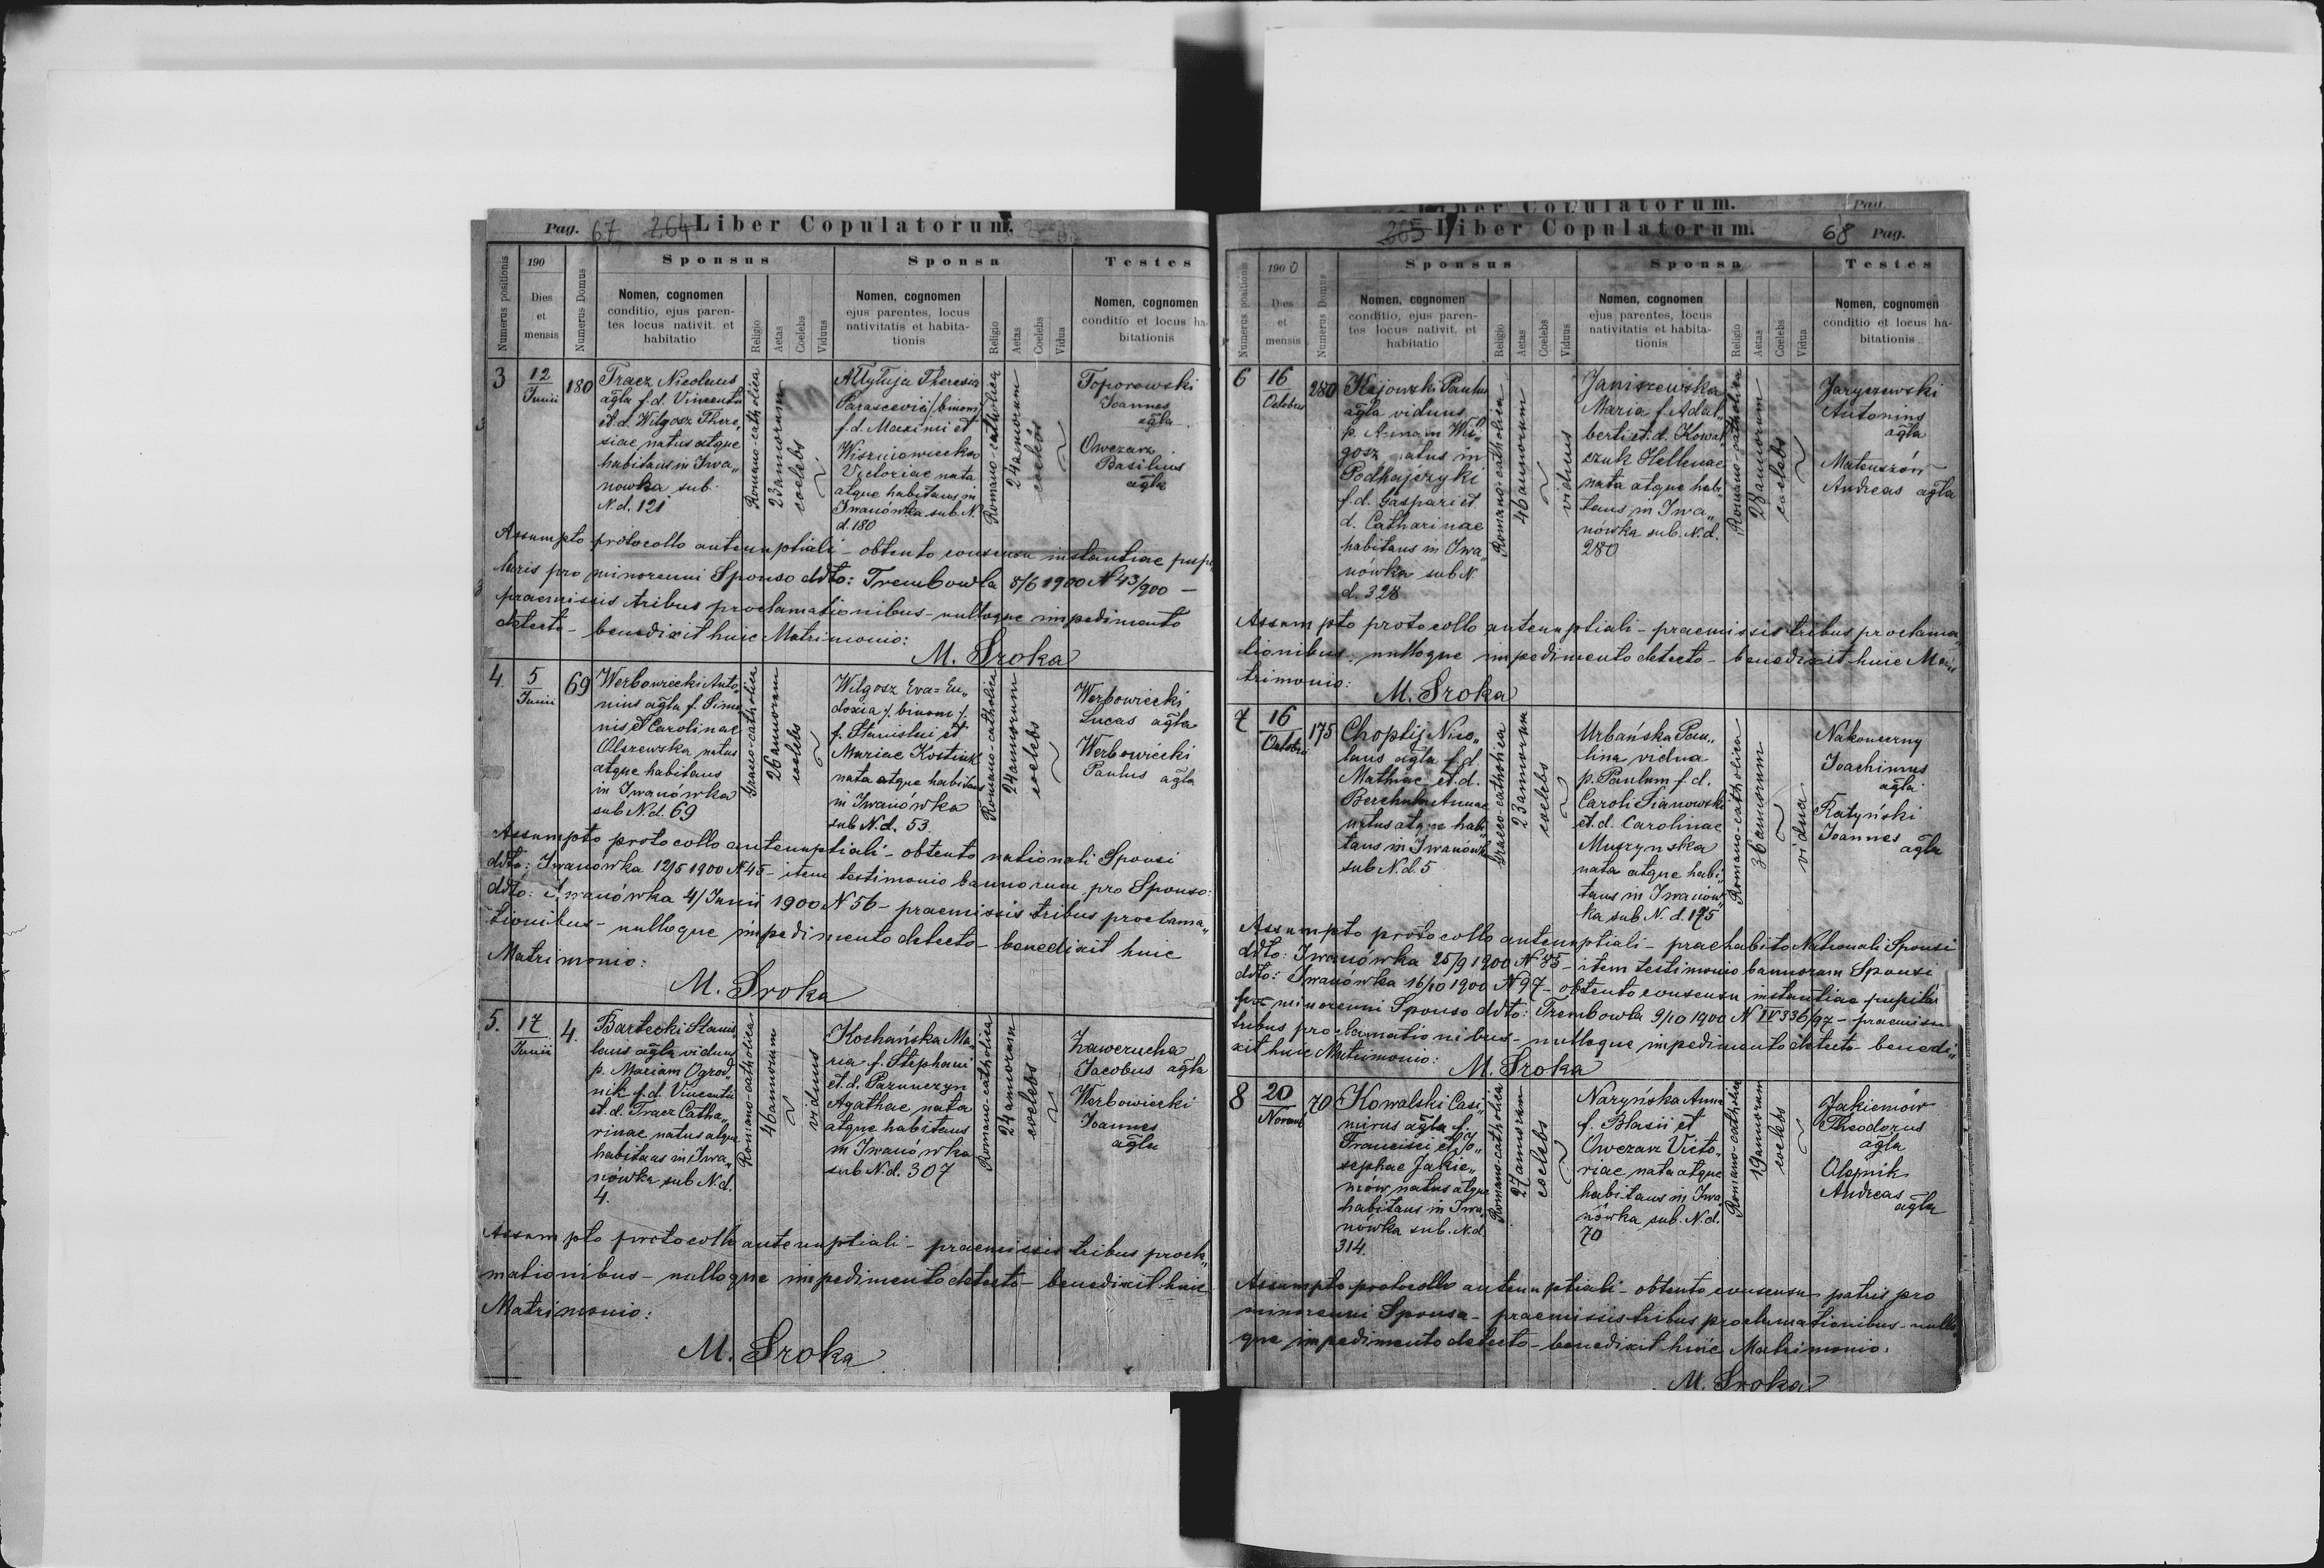 Pag. 67 264 Liber Copulatorum.
Numerus positionis
190
Dies
et
mensis
Numerus Domus
Sponsus
Nomen, cognomen
conditio, ejus paren-
tes locus nativit. et
habitatio
Religio
Aetas
Coelebs
Viduus
Sponsa
Nomen, cognomen
ejus parentes, locus
nativitatis et habita-
tionis
Religio
Aetas
Coelebs
Vidua
Testes
Nomen, cognomen
conditio et locus ha-
bitationis
3
12
Junii
180
Tracz Nicolaus
agla f. d. Vincentii
et d. Wilgosz There„
siae natus atque
habitans in Iwa„
nowka sub
N. d. 121
Romano-catholica
23 annorum
coelebs
Theresia
Parascevia /: binom
f. d. Maximi et
Wiszniowiecka
Victoriae nata
atque habitans in
Iwanówka sub N.
d. 180
Romano-catholica
24 annorum
coelebs
Toporowski
Joannes
agla
Owczarz
Basilius
agla
Assumpto protocollo antenuptiali - obtento consensu instantiae pupi„
laris pro minorenni Sponso ddto: Trembowla 8/6 1900 N 43/900 -
praemissis tribus proclamationibus - nulloque impedimento
detecto - benedixit huic Matrimonio:
M. Sroka
4.
5
Junii
69
Werbowiecki Anto„
nius agla f. Simo
nis et Carolinae
Olszewska natus
atque habitans
in Iwanówka
sub N. d. 69
Graeco-catholica
26 annorum
coelebs
Wilgosz Eva = Eu„
doxia /: binom :/
f. Stanislai et
Mariae Kostiuk
nata atque habitans
in Iwanówka
sub N. d. 53.
Romano-catholica
24 annorum
coelebs
Werbowiecki
Lucas agla
Werbowiecki
Paulus agla
Assumpto protocollo antenuptiali - obtento nationali Sponsi
ddto: Iwanówka 12/5 1900 N 45 - item testimonio bannorum pro Sponso:
ddto: Iwanówka 4/Junii 1900 N 56 - praemissis tribus proclama„
tionibus - nulloque impedimento detecto - benedixit huic
Matrimonio:
M. Sroka
5.
17
Junii
4.
Bartecki Stanis„
laus agla viduus
p. Mariam Ogrod„
nik f. d. Vincentii
et d. Tracz Catha„
rinae natus atque
habitans in Iwa„
nówka sub N. d.
4.
Romano-catholica
46 annorum
viduus
Kochańska Ma„
ria f. Stephani
et d.
Agathae nata
atque habitans
in Iwanówka
sub N. d. 307
Romano-catholica
24 annorum
coelebs
Zawerucha
Jacobus agla
Werbowiecki
Joannes
agla
Assumpto protocollo antenuptiali - praemissis tribus procla„
mationibus - nulloque impedimento detecto - benedixit huic
Matrimonio:
M. Sroka
Liber Copulatorum. Pag.
265 Liber Copulatorum. 68 Pag.
Numerus positionis
1900
Dies
et
mensis
Numerus Domus
Sponsus
Nomen, cognomen
conditio, ejus paren-
tes locus nativit. et
habitatio
Religio
Aetas
Coelebs
Viduus
Sponsa
Nomen, cognomen
ejus parentes, locus
nativitatis et habita-
tionis
Religio
Aetas
Coelebs
Vidua
Testes
Nomen, cognomen
conditio et locus ha-
bitationis
6
16
Octobris
280
Paulus
agla viduus
p. Annam Wil„
gosz natus in
Podhajczyki
f. d. Gaspari et
d. Catharinae
habitans in Iwa„
nówka sub N.
d. 328
Romano-catholica
46 annorum
viduus
Janiszewska
Maria f. Adal„
berti et d. Kowal
czuk Hellenae
nata atque habi„
tans in Iwa„
nówka sub. N. d.
280
Romano-catholica
28 annorum
coelebs
Jaryszewski
Antonius
agla
Mateuszów
Andreas agla
Assumpto protocollo antenuptiali - praemissis tribus proclama„
tionibus - nulloque impedimento detecto - benedixit huic Ma„
trimonio:
M. Sroka
7
16
Octobris
175
Choptij Nico„
laus agla f. d.
Mathiae et d.
Annae
natus atque habi„
tans in Iwanówka
sub N. d. 5
Graeco-catholica
23 annorum
coelebs
Urbańska Pau„
lina vidua
p. Paulum f. d.
Caroli Sianowski
et d. Carolinae
Muszynska
nata atque habi„
tans in Iwanów„
ka sub N. d. 175
Romano-catholica
36 annorum
vidua
Nakoneczny
Joachimus
agla
Ratyński
Joannes
agla
Assumpto protocollo antenuptiali - praehabito Nationali Sponsi
ddto: Iwanówka 25/9 1900 N 85 - item testimonio bannorum Sponsi
ddto: Iwanówka 16/10 1900 N 97 - obtento consensu instantiae pupilar
pro minorenni Sponso ddto: Trembowla 9/10 1900 N IV 336/97 - praemissis
tribus proclamationibus - nulloque impedimento detecto - benedi„
xit huic Matrimonio:
M. Sroka
8
20
Novemb
70
Kowalski Casi„
mirus agla f.
Francisci et Jo„
sephae Jakie„
mów natus atque
habitans in Iwa„
nówka sub. N. d
314.
Romano-catholica
27 annorum
coelebs
Naryńska Anna
f. Blasii et
Owczarz Victo„
riae nata atque
habitans in Iwa„
nówka sub. N. d.
70
Romano-catholica
19 annorum
coelebs
Jakiemów
Theodorus
agla
Olejnik
Andreas
agla
Assumpto protocollo antenuptiali - obtento consensu patris pro
minorenni Sponsa - praemissis tribus proclamationibus - nullo
que impedimento detecto - benedixit huic Matrimonio:
M. Sroka